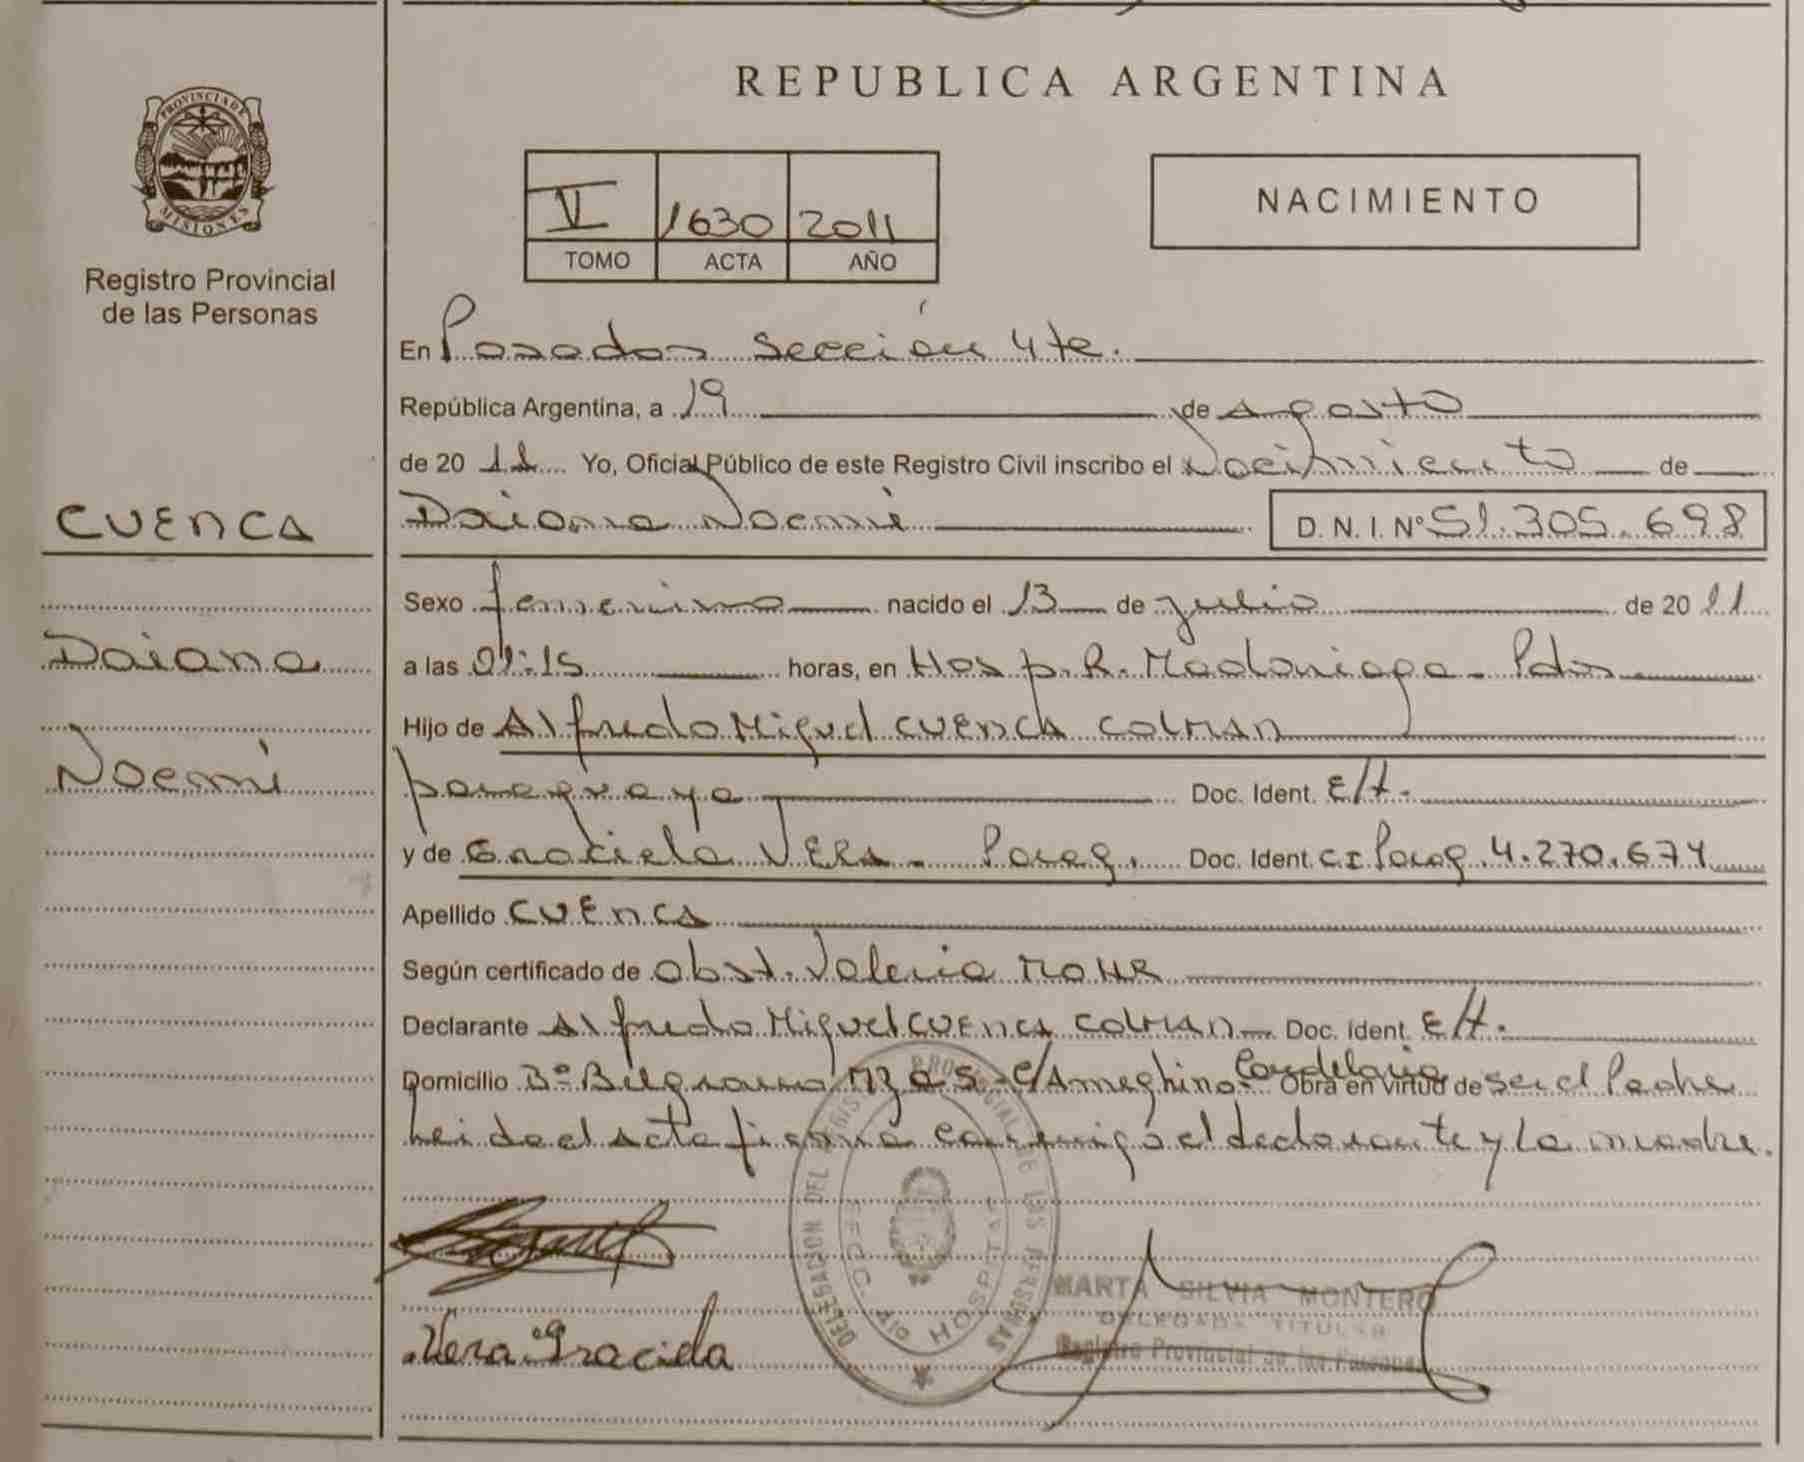 REPUBLICA ARGENTINA
PROVINCIA DE MISIONES
Registro Provincial
de las Personas
V 1630 2011
TOMO ACTA AÑO
NACIMIENTO
En Posadas Sección 4ta.
República Argentina, a 19 de agosto
de 20 11 Yo, Oficial Público de este Registro Civil inscribo el Nacimiento de
CUENCA
Daiana Noemi D.N.I. Nº 51.305.698
Daiana
Noemi
Sexo femenino nacido el 13 de julio de 20 11
a las 01:15 horas, en Hosp. R. Madariaga - Pdas
Hijo de Alfredo Miguel CUENCA COLMAN
paraguaya Doc. Ident. E/t.
y de Graciela VERA - Parag. Doc. Ident. CI Parag. 4.270.674
Apellido CUENCA
Según certificado de Obst. Valeria MOHR
Declarante Alfredo Miguel CUENCA COLMAN Doc. Ident. E/t.
Domicilio Bº Belgrano Mz c/Ameghino - Candelaria Obra en virtud de ser el Padre
leida el acta firma conmigo el declarante y la madre.
DELEGACION DEL REGISTRO PROVINCIAL DE LAS PERSONAS
SECC. 4ta HOSPITAL
MARTA SILVIA MONTERO
DELEGADA TITULAR
Registro Provincial de las Personas
Vera Graciela